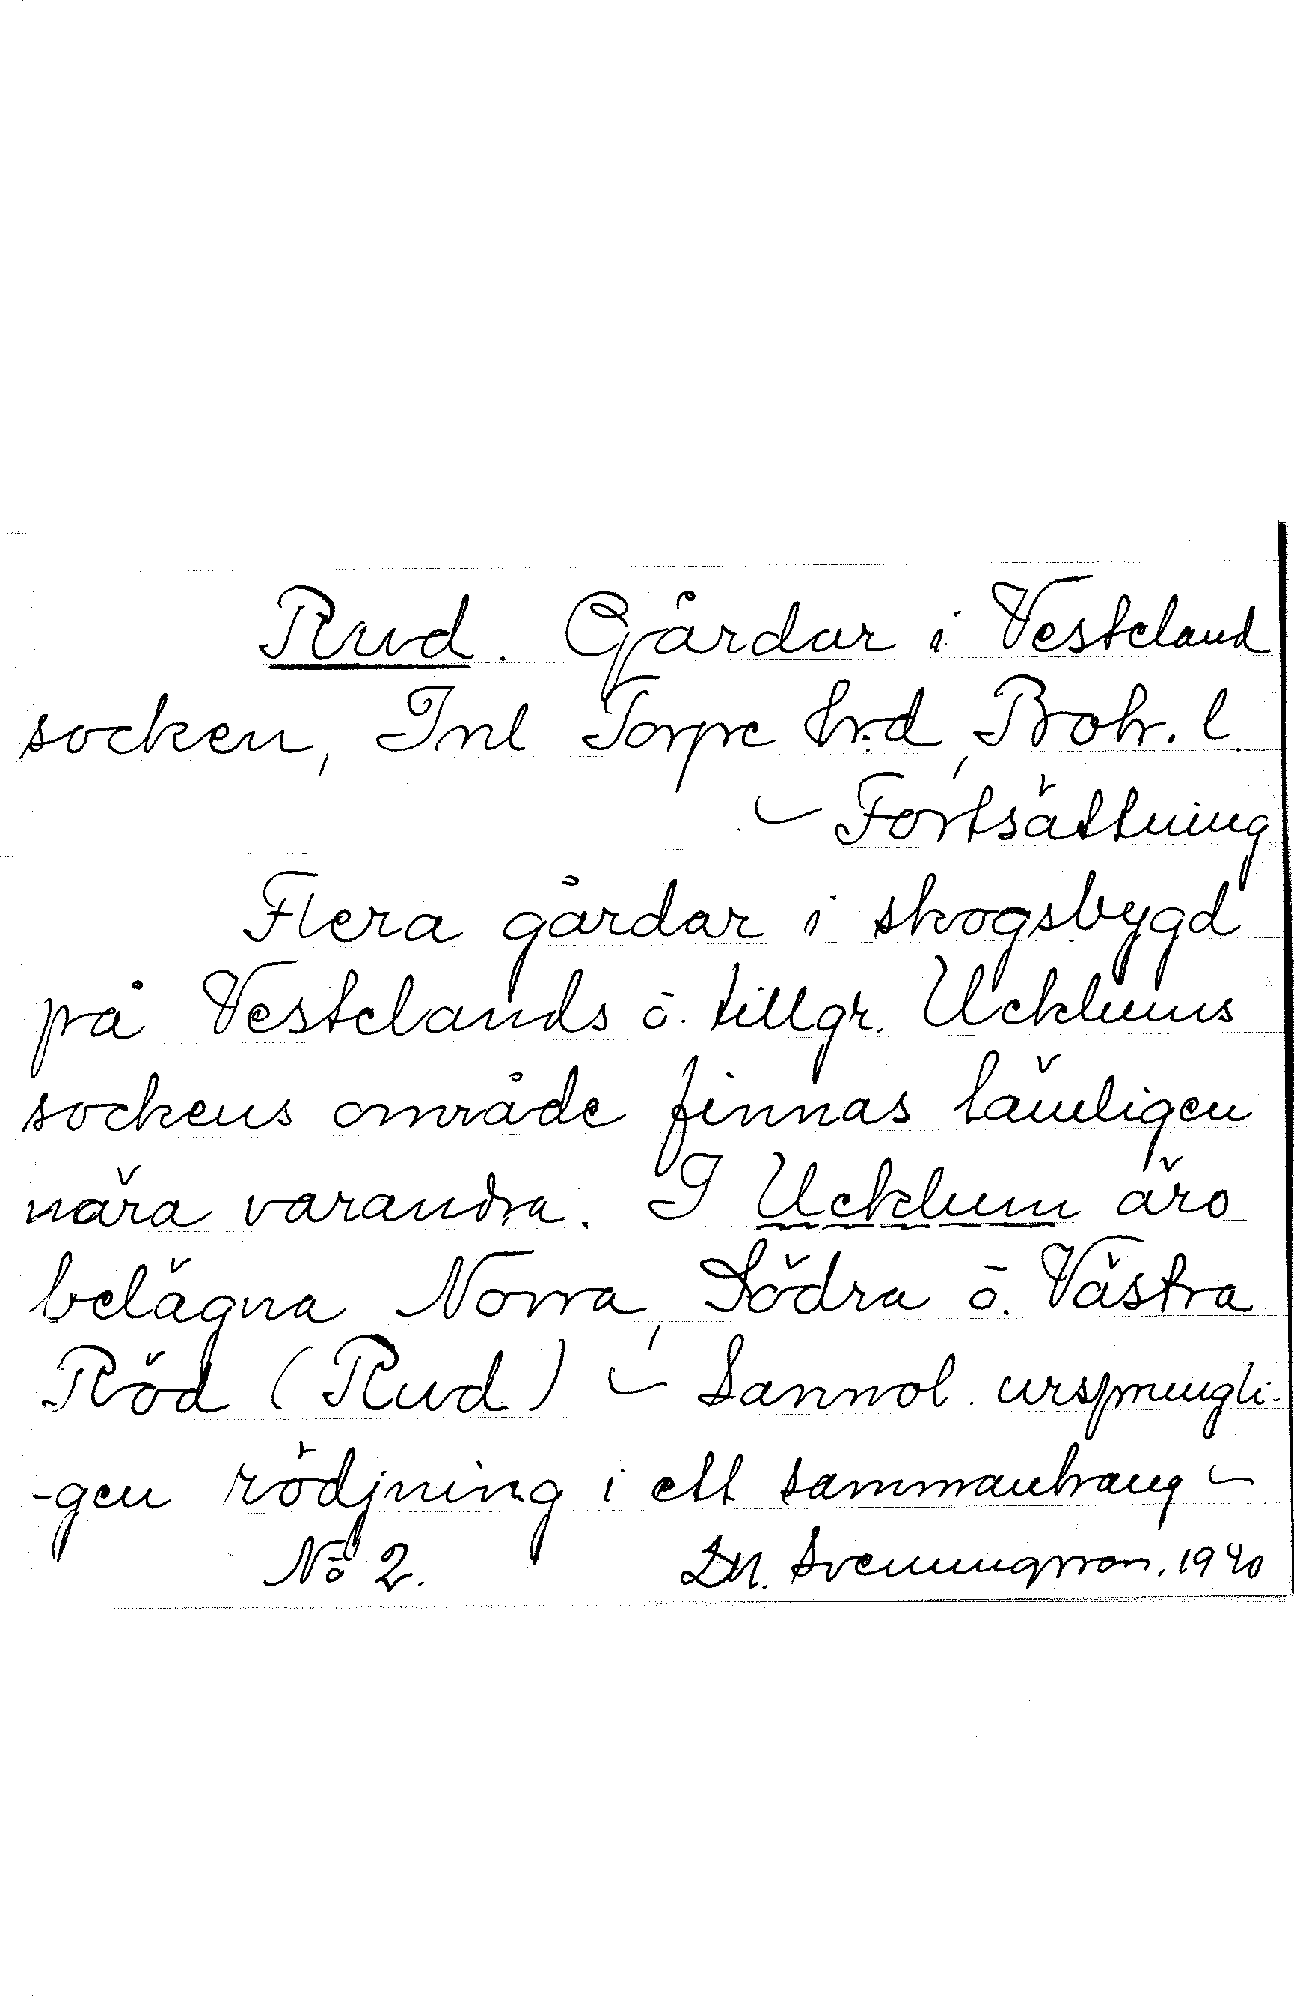 Rud. Gårdar i Vesteland
socken, Inl Torpe hrd, Boh. l.
– Fortsättning
Flera gårdar i skogsbygd
på Vestelands o. tillgr. Ucklums
sockens område finnas lämligen
nära varandra. I Ucklum äro
belägna Norra, Södra o. Västra
Röd (Rud) – Sannol. ursprungli-
-gen rödjning i ett sammanhang –
No 2. Svenningsson. 1940